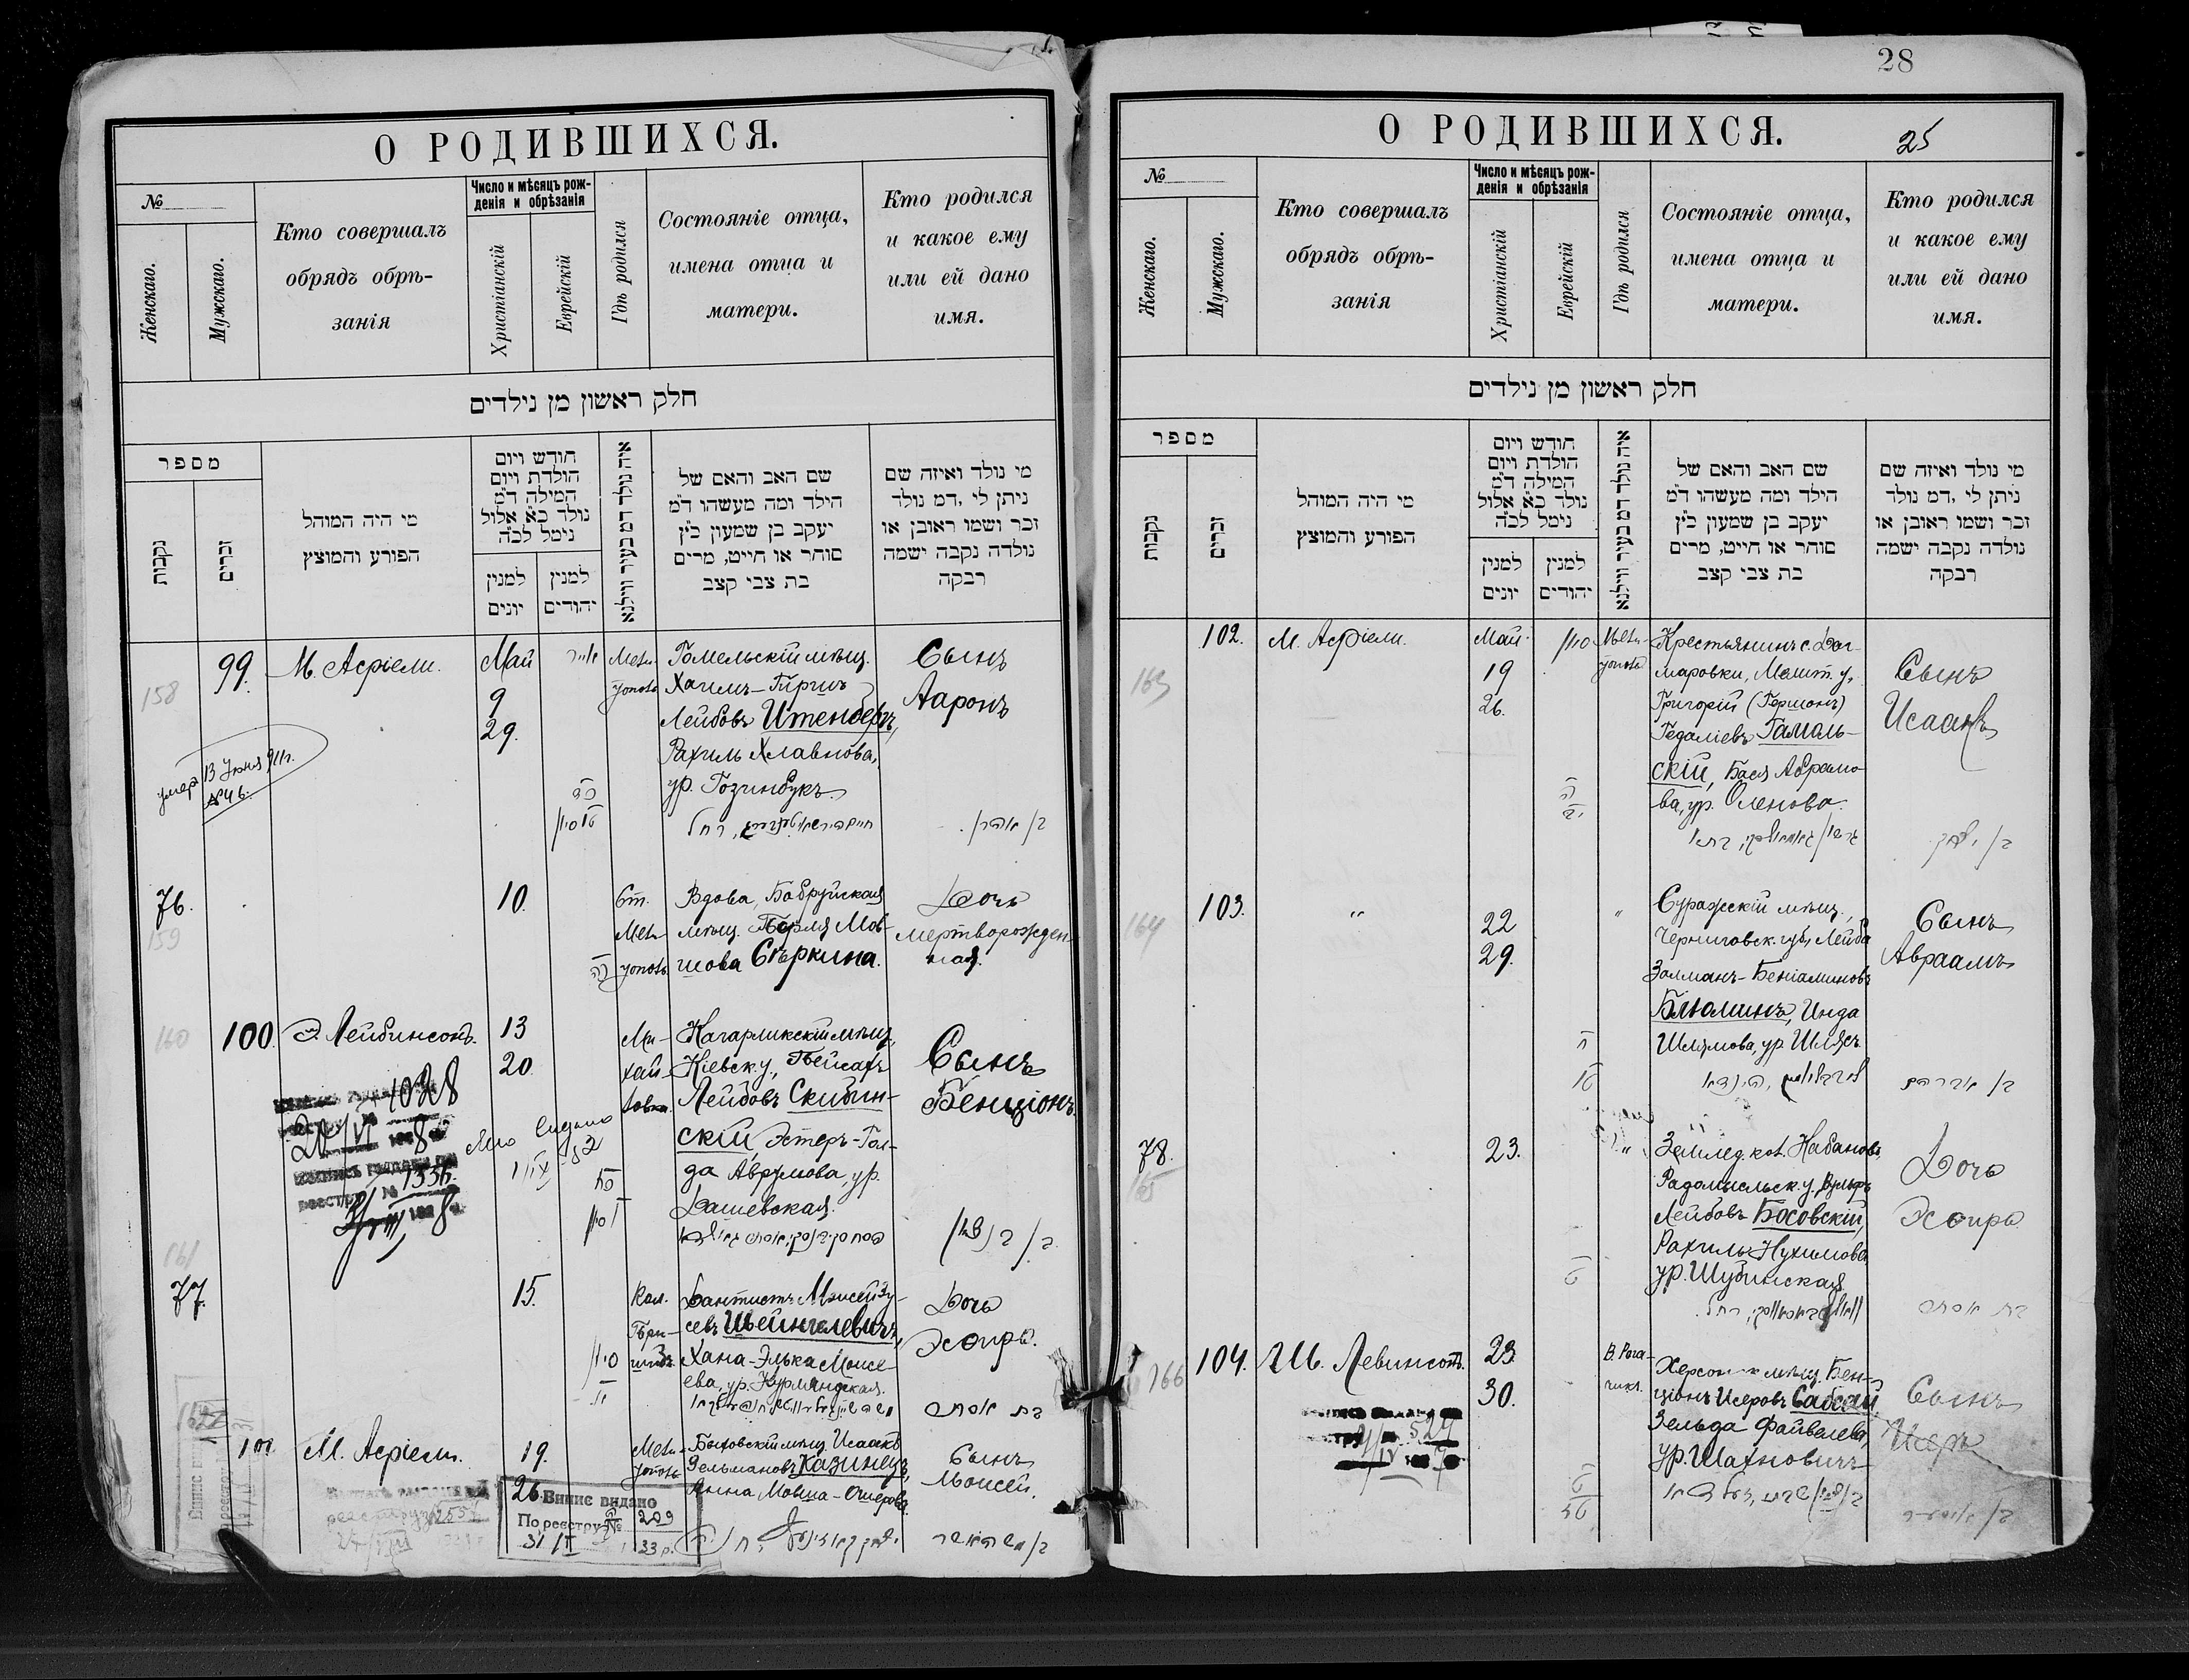 О РОДИВШИХСЯ.
№
Женскаго.
Мужскаго.
Кто совершалъ
обрядъ обрѣ-
занія
Число и мѣсяцъ рож-
денія и обрѣзанія
Христіанскій
Еврейскій
Гдѣ родился
Состояніе отца,
имена отца и
матери.
Кто родился
и какое ему
или ей дано
имя.
חלק ראשון מן נילדים
מספר
נקבות
זכרים
מי היה המוהל
הפורע והמוצץ
חודש ויום
הולדת ויום
המילה ד"מ
נולד כ"א אלול
נימל לכ"ה
למנין
יונים
למנין
יהודים
איה נולד דמ בעיר ווילנא
שם האב והאם של
הילד ומה מעשהו ד"מ
יעקב בן שמעון כ"ץ
סוחר או חייט, מרים
בת צבי קצב
מי נולד ואיזה שם
ניתן לי ,דמ נולד
זכר ושמו ראובן או
נולדה נקבה ישמה
רבקה
158
99.
М. Асріели.
Май
9
29.
אייר
Мели-
тополь
Гомельскій мѣщ.
Хаимъ-Гиршъ
Лейбовъ Штенберъ,
Рахиль Хлавнова,
ур. Гозинбукъ.
Сынъ
Ааронъ
умеръ 13 Іюня 911г.
№46.
76.
159
10.
Ст.
Мели-
тополь
Вдова, Бобруйская
мѣщ. Берля Мов-
шова Сѣркина.
Дочь
мертворожден-
ная.
160
100
Э. Лейбинсонъ.
13
20
Ми-
хай-
ловка.
Кагарликскій мѣщ.
Кіевск. у., Пейсахъ
Лейбовъ Скибин-
скій, Эстеръ-Гол-
да Аврумова, ур.
Дашевская.
Сынъ
Бенціонъ.
4038
1336
161
77.
15.
Кол.
Дантистъ Моисей Зу-
севъ Шейнгалевичъ,
Хана-Элька Моисе-
ева, ур. Курляндская.
Дочь
Эсѳирь.
בת אסתר
М. Асріели.
19.
26.
Мели-
тополь
Быховскій мѣщ. Исаакъ
Зельмановъ Казинецъ,
Анна Мовша-Ошерова.
Сынъ
Моисей.
Випис видано
По реєстру №
209
31/
33 р.
28
О РОДИВШИХСЯ.
25
№
Женскаго.
Мужскаго.
Кто совершалъ
обрядъ обрѣ-
занія
Число и мѣсяцъ рож-
денія и обрѣзанія
Христіанскій
Еврейскій
Гдѣ родился
Состояніе отца,
имена отца и
матери.
Кто родился
и какое ему
или ей дано
имя.
חלק ראשון מן נילדים
מספר
נקבות
זכרים
מי היה המוהל
הפורע והמוצץ
חודש ויום
הולדת ויום
המילה ד"מ
נולד כ"א אלול
נימל לכ"ה
למנין
יונים
למנין
יהודים
איה נולד דמ בעיר ווילנא
שם האב והאם של
הילד ומה מעשהו ד"מ
יעקב בן שמעון כ"ץ
סוחר או חייט, מרים
בת צבי קצב
מי נולד ואיזה שם
ניתן לי ,דמ נולד
זכר ושמו ראובן או
נולדה נקבה ישמה
רבקה
163
102.
М. Асріели.
Май
19
26.
סיון
Мели-
тополь
Крестьянинъ с. Дог-
маровки, Мелит. у,
Григорій (Гершонъ)
Гедаліевъ Гамаль-
скій, Бася Абрамо-
ва, ур. Оленова.
Сынъ
Исаакъ
בן יצחק
164
103.
"
22
29.
"
Суражскій мѣщ.,
Черниговск. губ, Лейба
Залманъ-Беніаминовъ
Блюминъ, Инда
Шлямова, ур. Шлясъ.
Сынъ
Авраамъ
בן אברהם
78.
165
23.
"
Землед. кол. Кабановъ,
Радомысльск. у. Вульфъ
Лейбовъ Босовскій,
Рахиль Нухимова,
ур. Шубинская
Дочь
Эсѳирь.
בת אסתר
166
104.
Ш. Левинсонъ.
23
30.
В. Рога-
чикъ.
мѣщ. Бен-
ціонъ Исеровъ Сабсай,
Зельда Файвелева,
ур. Шахновичъ
Сынъ
Исеръ
529